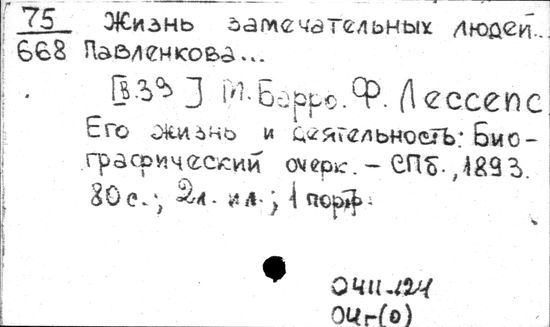 75 Жизнь замечательных людей...
668 Павленкова...
[В.39] М. Барро. Ф. Лессепс
Его жизнь и деятельность: Био-
графический очерк. - СПб., 1893.
80 с.; 2л. ил.; 1 портр.
04И-124
04г(0)